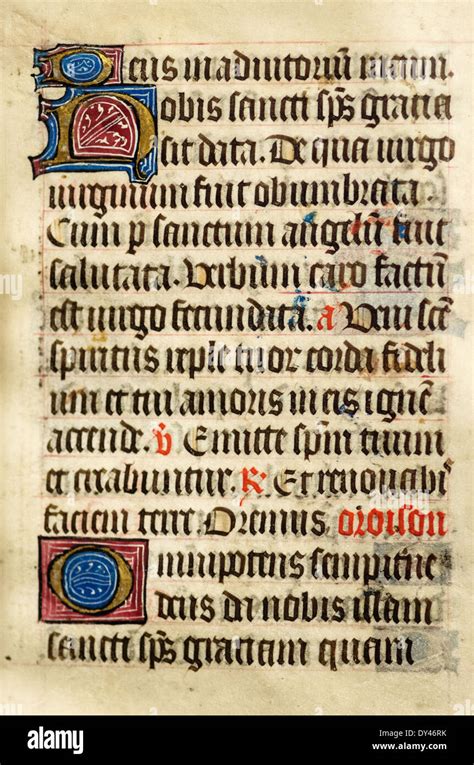 Deus in adiutoriū meum.
Nobis sancti sp̄s gratia
sit data. De qua uirgo
uirginum fuit obumbrata
Cum p sanctum angelū fuit
salutata. Verbum caro factū
est uirgo fecundata. a Veni scē
spiritus reple tuor corda fideli
um et tui amoris in eis ignē
accende. v̄ Emitte sp̄m tuum
et creabuntur. R̄ Et renouabi
faciem terre. Oremus oroison
Omnipotens sempitne
deus da nobis illam
sancti sp̄s gratiam quam
alamy stock photo
alamy
DY46RK
www.alamy.com